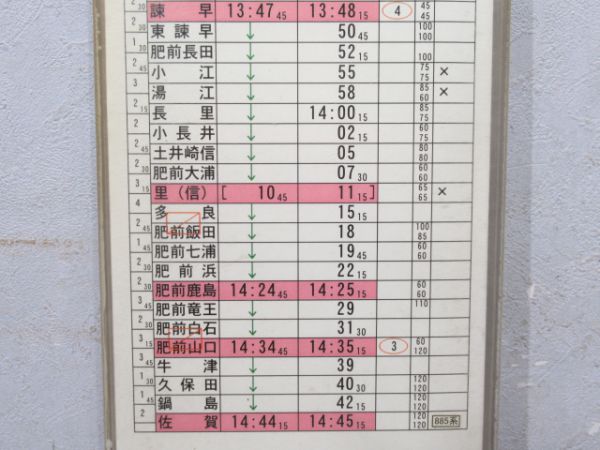 2 30 諫早 13:47 45 13:48 15 4 45 45
東諫早 ↓ 50 45 100 100
肥前長田 ↓ 52 15 100
2 45 小江 ↓ 55 75 75 ×
湯江 ↓ 58 85 60 ×
2 15 長里 ↓ 14:00 15
2 小長井 ↓ 02 15 60 75
2 45 土井崎信 ↓ 05 80 80
2 30 肥前大浦 ↓ 07 30 60 60
3 15 里(信) [ 10 45 11 15 ] 65 65 ×
4 多良 ↓ 15 15
2 45 肥前飯田 ↓ 18 100 85
肥前七浦 ↓ 19 45 60 60
2 30 肥前浜 ↓ 22 15
2 30 肥前鹿島 14:24 45 14:25 15 60 60
肥前竜王 ↓ 29 110
2 30 肥前白石 ↓ 31 30
3 15 肥前山口 14:34 45 14:35 15 3 60 120
牛津 ↓ 39
久保田 ↓ 40 30 120 120
1 45 鍋島 ↓ 42 15 120 120
2 佐賀 14:44 15 14:45 15 120 120 885系